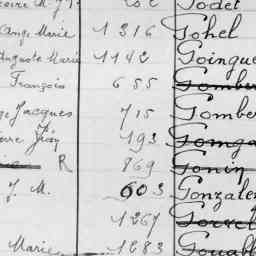 Godet
Ange Marie 1316 Gohel
Auguste Marie 1142 Goingue
François 655 Gomber
Jacques 715 Gomber
193 Gomga
R 869 Gonin
J. M. 603 Gonzale
1267 Gorret
Marie 1283 Gouabl